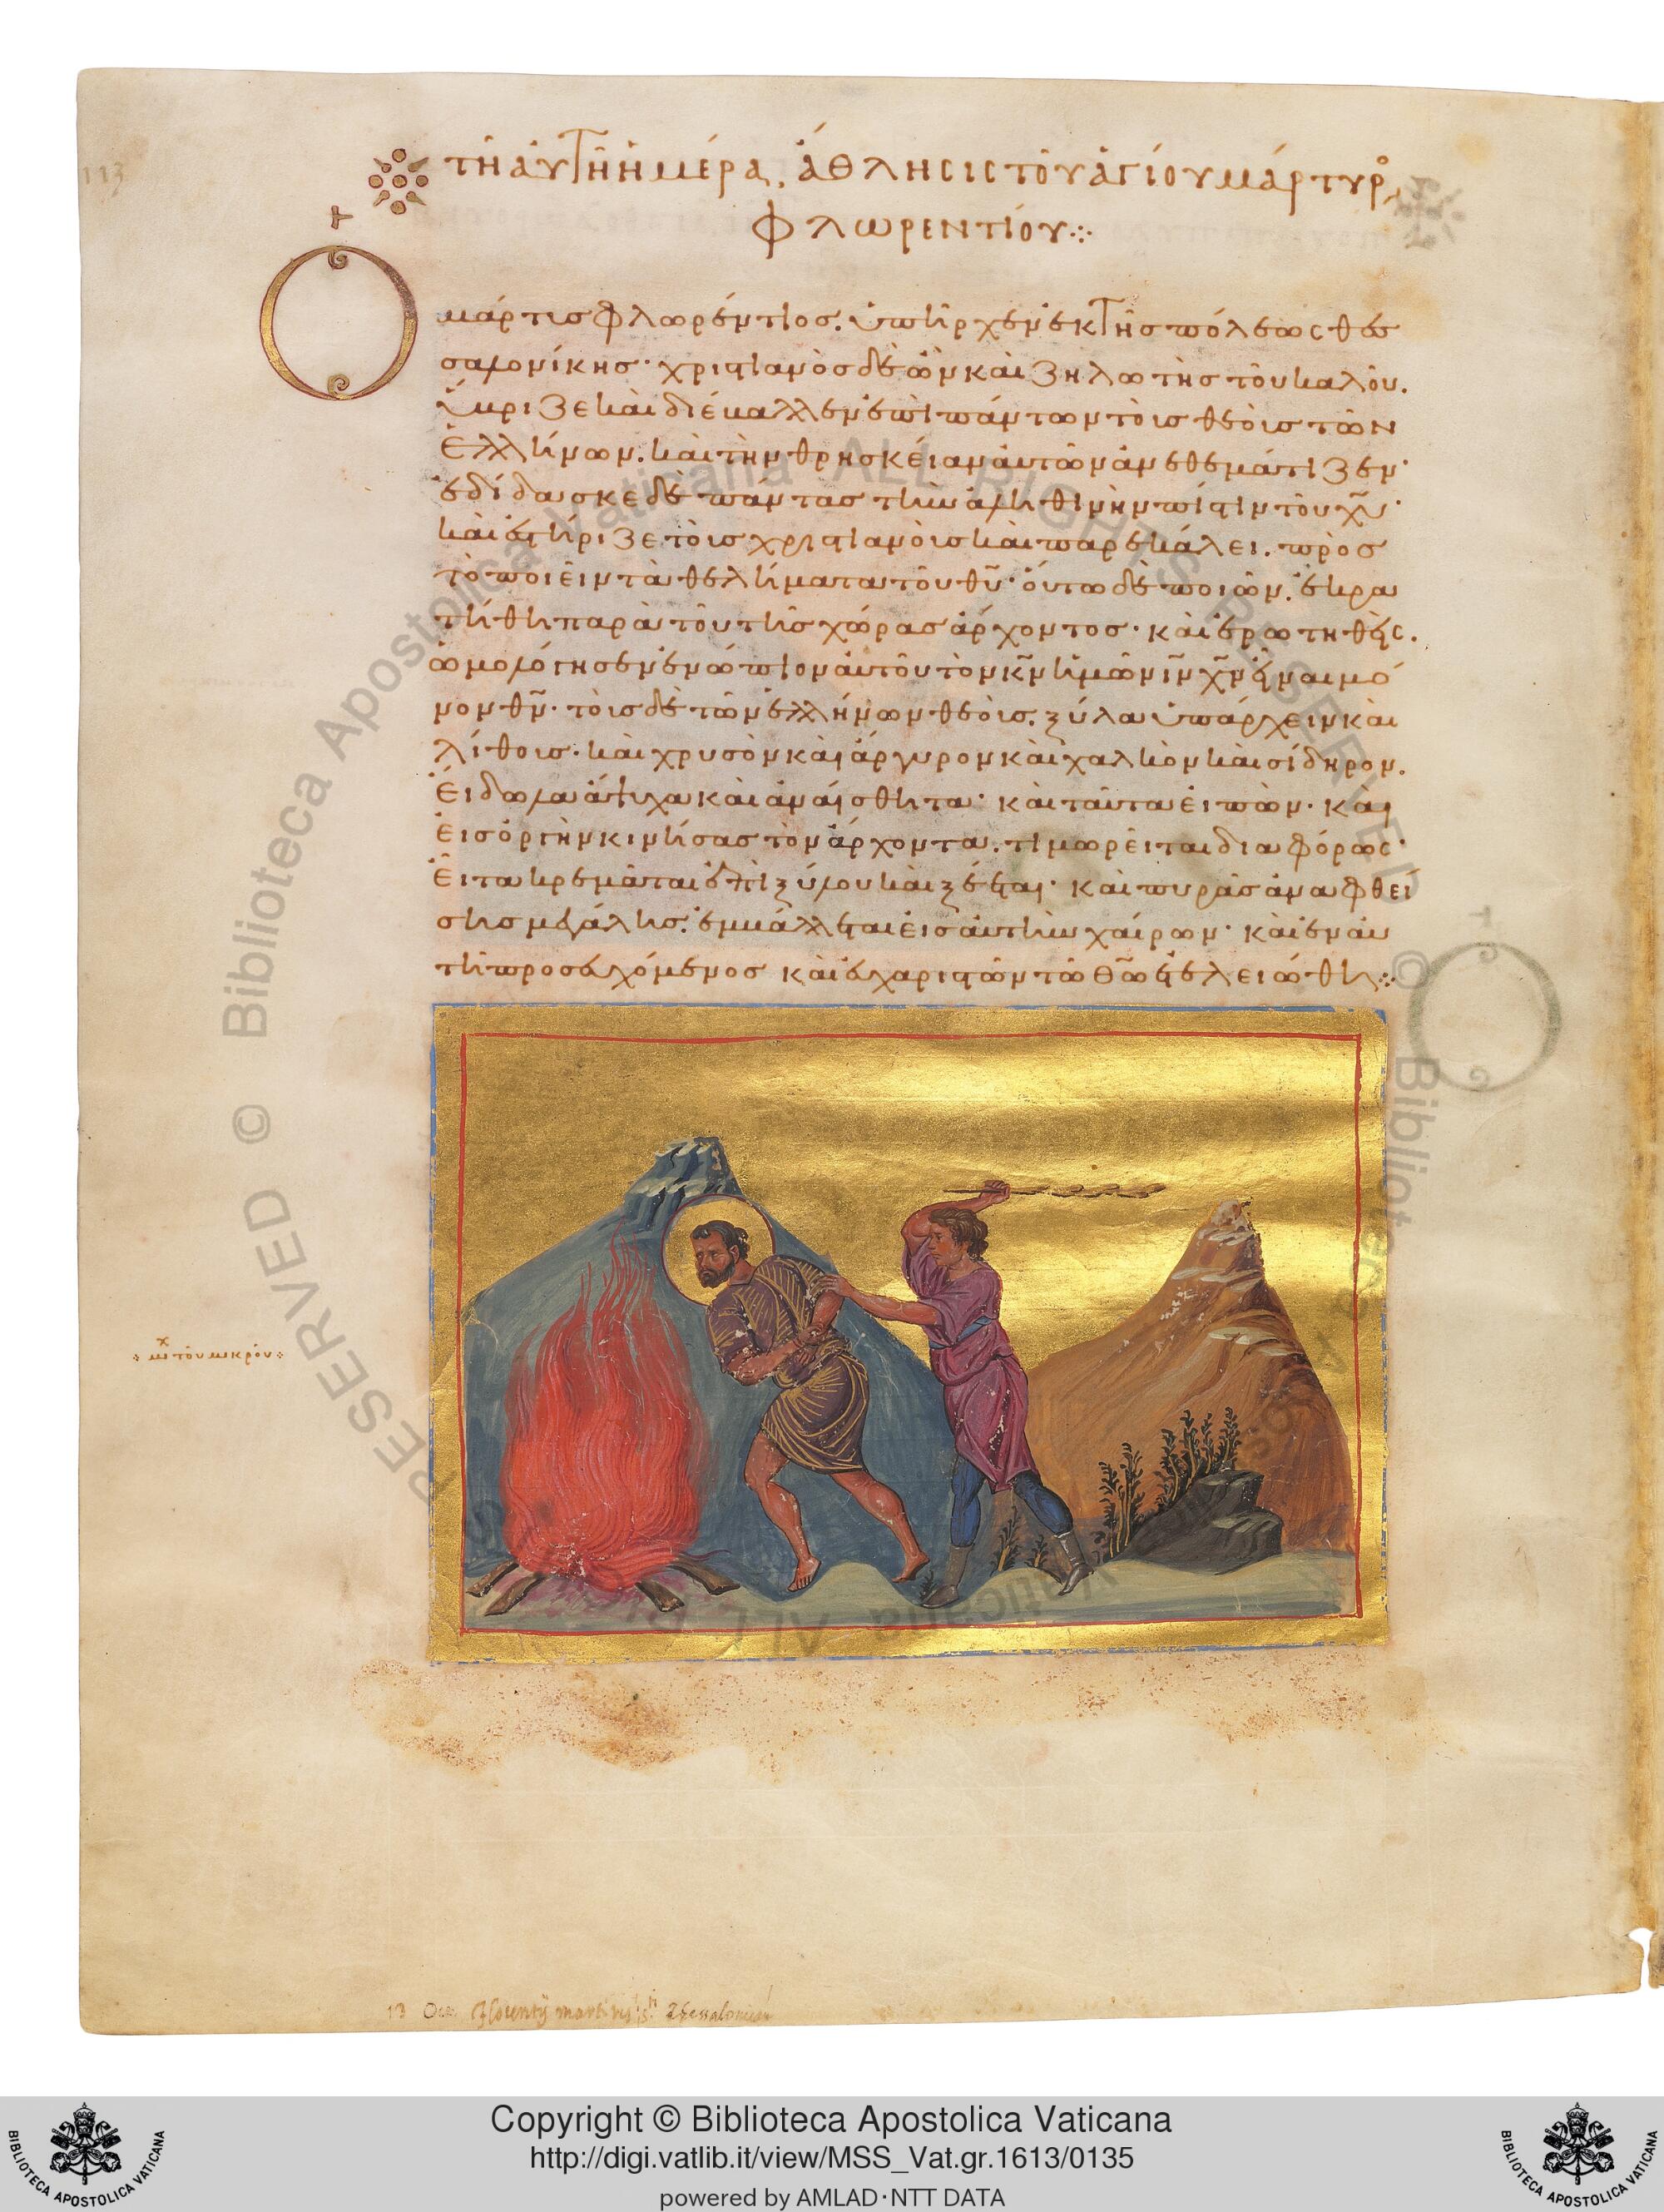 113
τῆ αὐτῆ ἡμέρα, ἄθλησις τοῦ ἁγίου μάρτυρο
Φλωρεντίου
Ὁ μάρτις Φλωρέντιος, ὑπῆρχεν ἐκ τῆς πόλεως Θεσ
σαλονίκης· χριστιανὸς δὲ ὢν καὶ ζηλωτὴς τοῦ καλοῦ,
ὕβριζε καὶ διέβαλλεν ἐπὶ πάντων τοῖς θεοῖς τῶν
Ἑλλήνων, καὶ τὴν θρησκείαν αὐτῶν ἀνεθεμάτιζεν·
ἐδίδασκε δὲ πάντας τὴν ἀληθινὴν πίστιν τοῦ χυ·
καὶ ἐστήριζε τοῖς χριστιανοῖς καὶ παρεκάλει, πρὸς
τὸ ποιεῖν τὰ θελήματα τοῦ θυ· οὕτω δὲ ποιῶν, ἐκρα
τήθη παρὰ τοῦ τῆς χώρας ἄρχοντος· καὶ ἐρωτηθεὶς,
ὡμολόγησεν ἐνώπιον αὐτοῦ τὸν κν ἡμῶν ιν χν εἶναι μό
νον θν· τοῖς δὲ τῶν ἑλλήνων θεοῖς, ξύλα ὑπάρχειν καὶ
λίθοις· καὶ χρυσὸν καὶ ἄργυρον καὶ χαλκὸν καὶ σίδηρον,
εἴδωλα ἄψυχα καὶ ἀναίσθητα· καὶ ταῦτα εἰπὼν· καὶ
εἰς ὀργὴν κινήσας τὸν ἄρχοντα, τιμωρεῖται διαφόρως·
εἶτα κρεμᾶται ἐπὶ ξύλου καὶ ξέεται· καὶ πυρᾶς ἀναφθεί
σης μεγάλης, ἐμβάλλεται εἰς αὐτὴν χαίρων· καὶ ἐν αὐ
τῆ προσευχόμενος καὶ εὐχαριστῶν τῶ θω ἐτελειώθη
τοῦ μικροῦ
13 Oct. Florentij martyris Thessalonicae
© Biblioteca Apostolica Vaticana ALL RIGHTS RESERVED © Biblioteca Apostolica Vaticana ALL RIGHTS RESERVED
BIBLIOTECA APOSTOLICA VATICANA
Copyright © Biblioteca Apostolica Vaticana
http://digi.vatlib.it/view/MSS_Vat.gr.1613/0135
powered by AMLAD·NTT DATA
BIBLIOTECA APOSTOLICA VATICANA